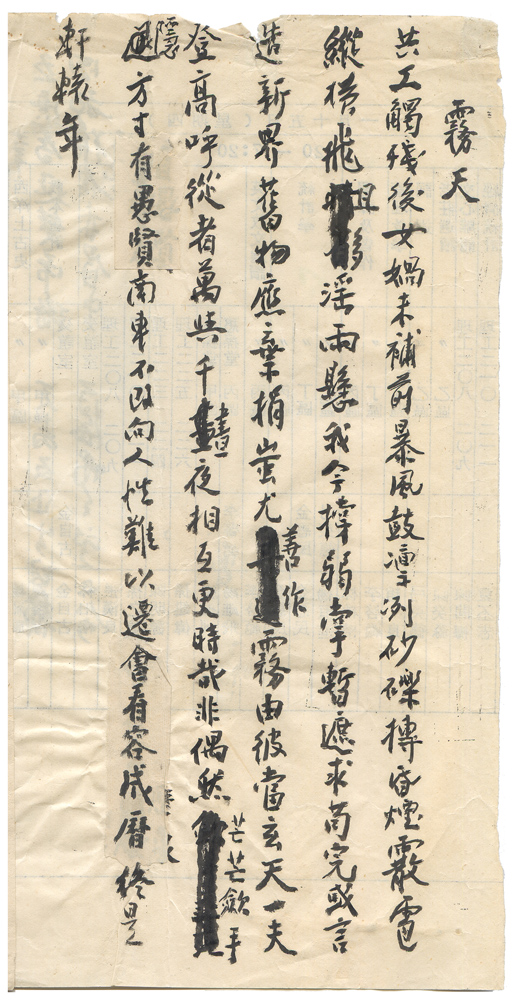 霧天
共工觸殘後女媧未補前暴風鼓凜冽砂礫摶昏煙霰雹
縱橫飛且淫雨懸我今撐弱掌暫遮求苟完或言
造新界舊物應棄捐蚩尤善作霧由彼當玄天一夫
登高呼從者萬與千晝夜相互更時哉非偶然芒芒歛手
隱方寸有愚賢南車不改向人性難以遷會看容成曆終是
軒轅年